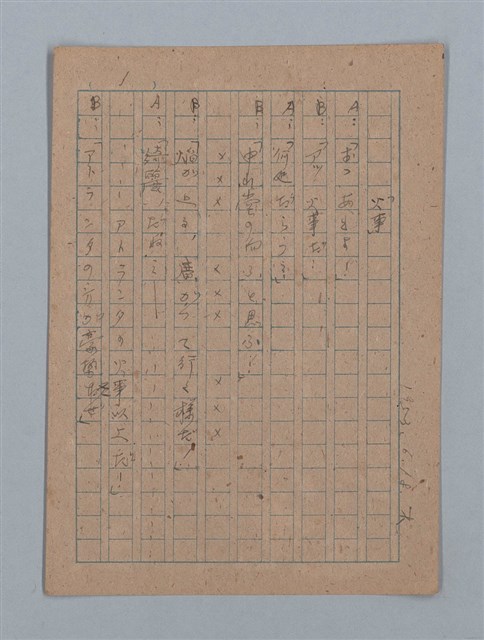 「火事」
A：「おっ あれは！」
B：「アッ 火事だ！」
A：「何処だらう？」
B：「中山堂の向ふと思ふ！」
××× ××× ×××
B：「焔が上る、廣がつて行く様だ！」
A：「綺麗だね…
アトランタの火事以上だ！」
B：「アトランタの方が豪勢だぜ」